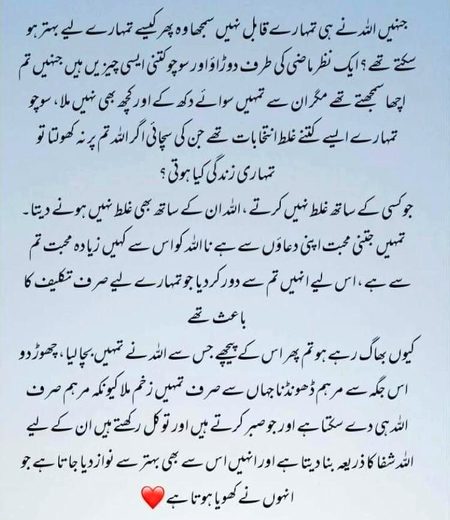 جنہیں اللہ نے ہی تمہارے قابل نہیں سمجھا وہ پھر کیسے تمہارے لیے بہتر ہو
سکتے تھے؟ ایک نظر ماضی کی طرف دوڑاؤ اور سوچو کتنی ایسی چیزیں ہیں جنہیں تم
اچھا سمجھتے تھے مگر ان سے تمہیں سوائے دکھ کے اور کچھ بھی نہیں ملا، سوچو
تمہارے ایسے کتنے غلط انتخابات تھے جن کی سچائی اگر اللہ تم پر نہ کھولتا تو
تمہاری زندگی کیا ہوتی؟
جو کسی کے ساتھ غلط نہیں کرتے، اللہ ان کے ساتھ بھی غلط نہیں ہونے دیتا۔
تمہیں جتنی محبت اپنی دعاؤں سے ہے نا اللہ کو اس سے کہیں زیادہ محبت تم
سے ہے، اس لیے انہیں تم سے دور کر دیا جو تمہارے لیے صرف تکلیف کا
باعث تھے
کیوں بھاگ رہے ہو تم پھر اس کے پیچھے جس سے اللہ نے تمہیں بچا لیا، چھوڑ دو
اس جگہ سے مرہم ڈھونڈنا جہاں سے صرف تمہیں زخم ملا کیونکہ مرہم صرف
اللہ ہی دے سکتا ہے اور جو صبر کرتے ہیں اور توکل رکھتے ہیں ان کے لیے
اللہ شفا کا ذریعہ بنا دیتا ہے اور انہیں اس سے بھی بہتر سے نواز دیا جاتا ہے جو
انہوں نے کھویا ہوتا ہے ❤️